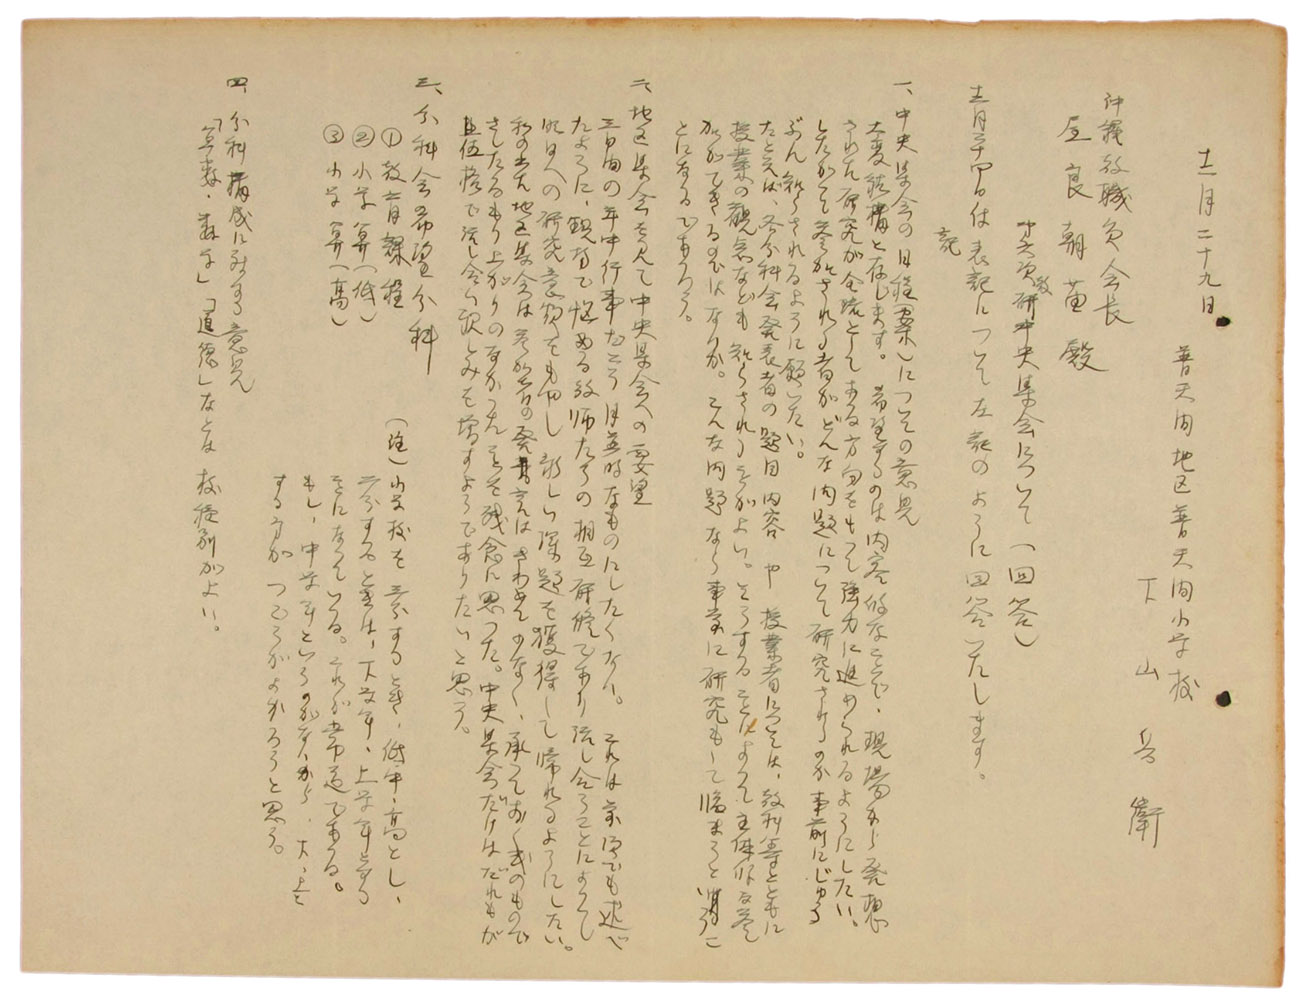 十二月二十九日
普天間地区普天間小学校
下山 衛
沖縄教職員会長
屋良朝苗殿
教研中央集会について(回答)
十二月二十四日付表記について左記のように回答いたします。
記
一、中央集会の日程(案)についての意見
大変結構と存じます。希望するのは内容的なことで、現場から発想
された研究が全琉としてある方向をもって強力に進められるようにしたい。
したがって参加される者がどんな問題について研究されるのか事前にじゅう
ぶん知らされるように願いたい。
たとえば、各分科会発表者の題目内容や授業者については、教科等とともに
授業の観点なども知らされる方がよい。そうすることによって主体的な参
加ができるのではないか。こんな問題なら事前に研究もして臨まうと
とになるであろう。
二、地区集会を了えて中央集会への要望
三日間の年中行事たそう的なものにしたくない。それは前項でも述べ
たように、現場で悩める教師たちの相互研修であり話し合うことによって
明日への研究意欲をもやし新しい課題を獲得して帰れるようにしたい。
私の出た地区集会は参加者の発言はきわめて少なく、承っておく式のもので
さしたるもり上がりのなかったことを残念に思った。中央集会だけはだれもが
話し合い親しみを増すようでありたいと思う。
三、分科会の希望分科
① 教育課程
② 小学 算(低)
③ 小学 算(高)
(注)小学校を三分するとき、低・中・高とし、
二分するときは、下学年、上学年とする
ことになっている。これが常道である。
もし、中学年というのがないから、下、上と
する方がつごうがよかろうと思う。
四、分科構成に対する意見
「算数・数学」「道徳」などは校種別がよい。